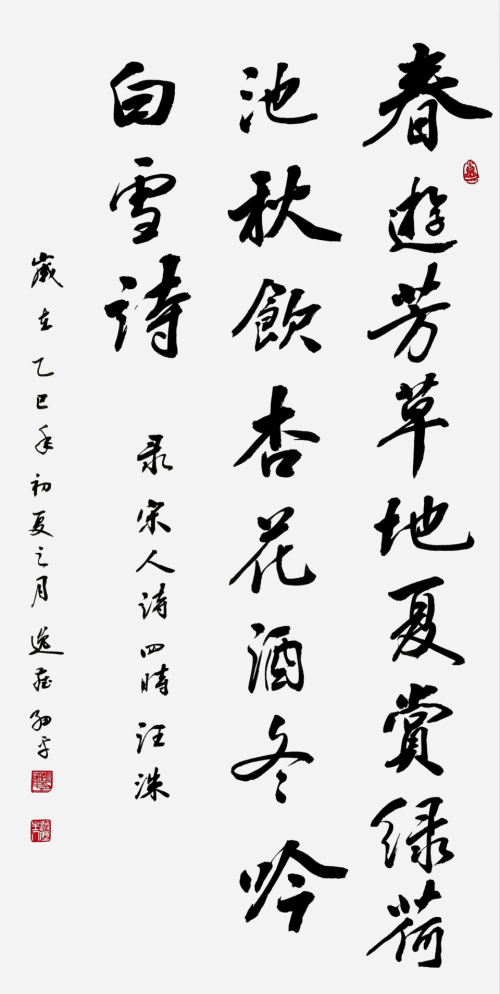 春遊芳草地夏賞绿荷
池秋飲杏花酒冬吟
白雪詩
录宋人詩四時汪洙
歲在乙巳年初夏之月逸